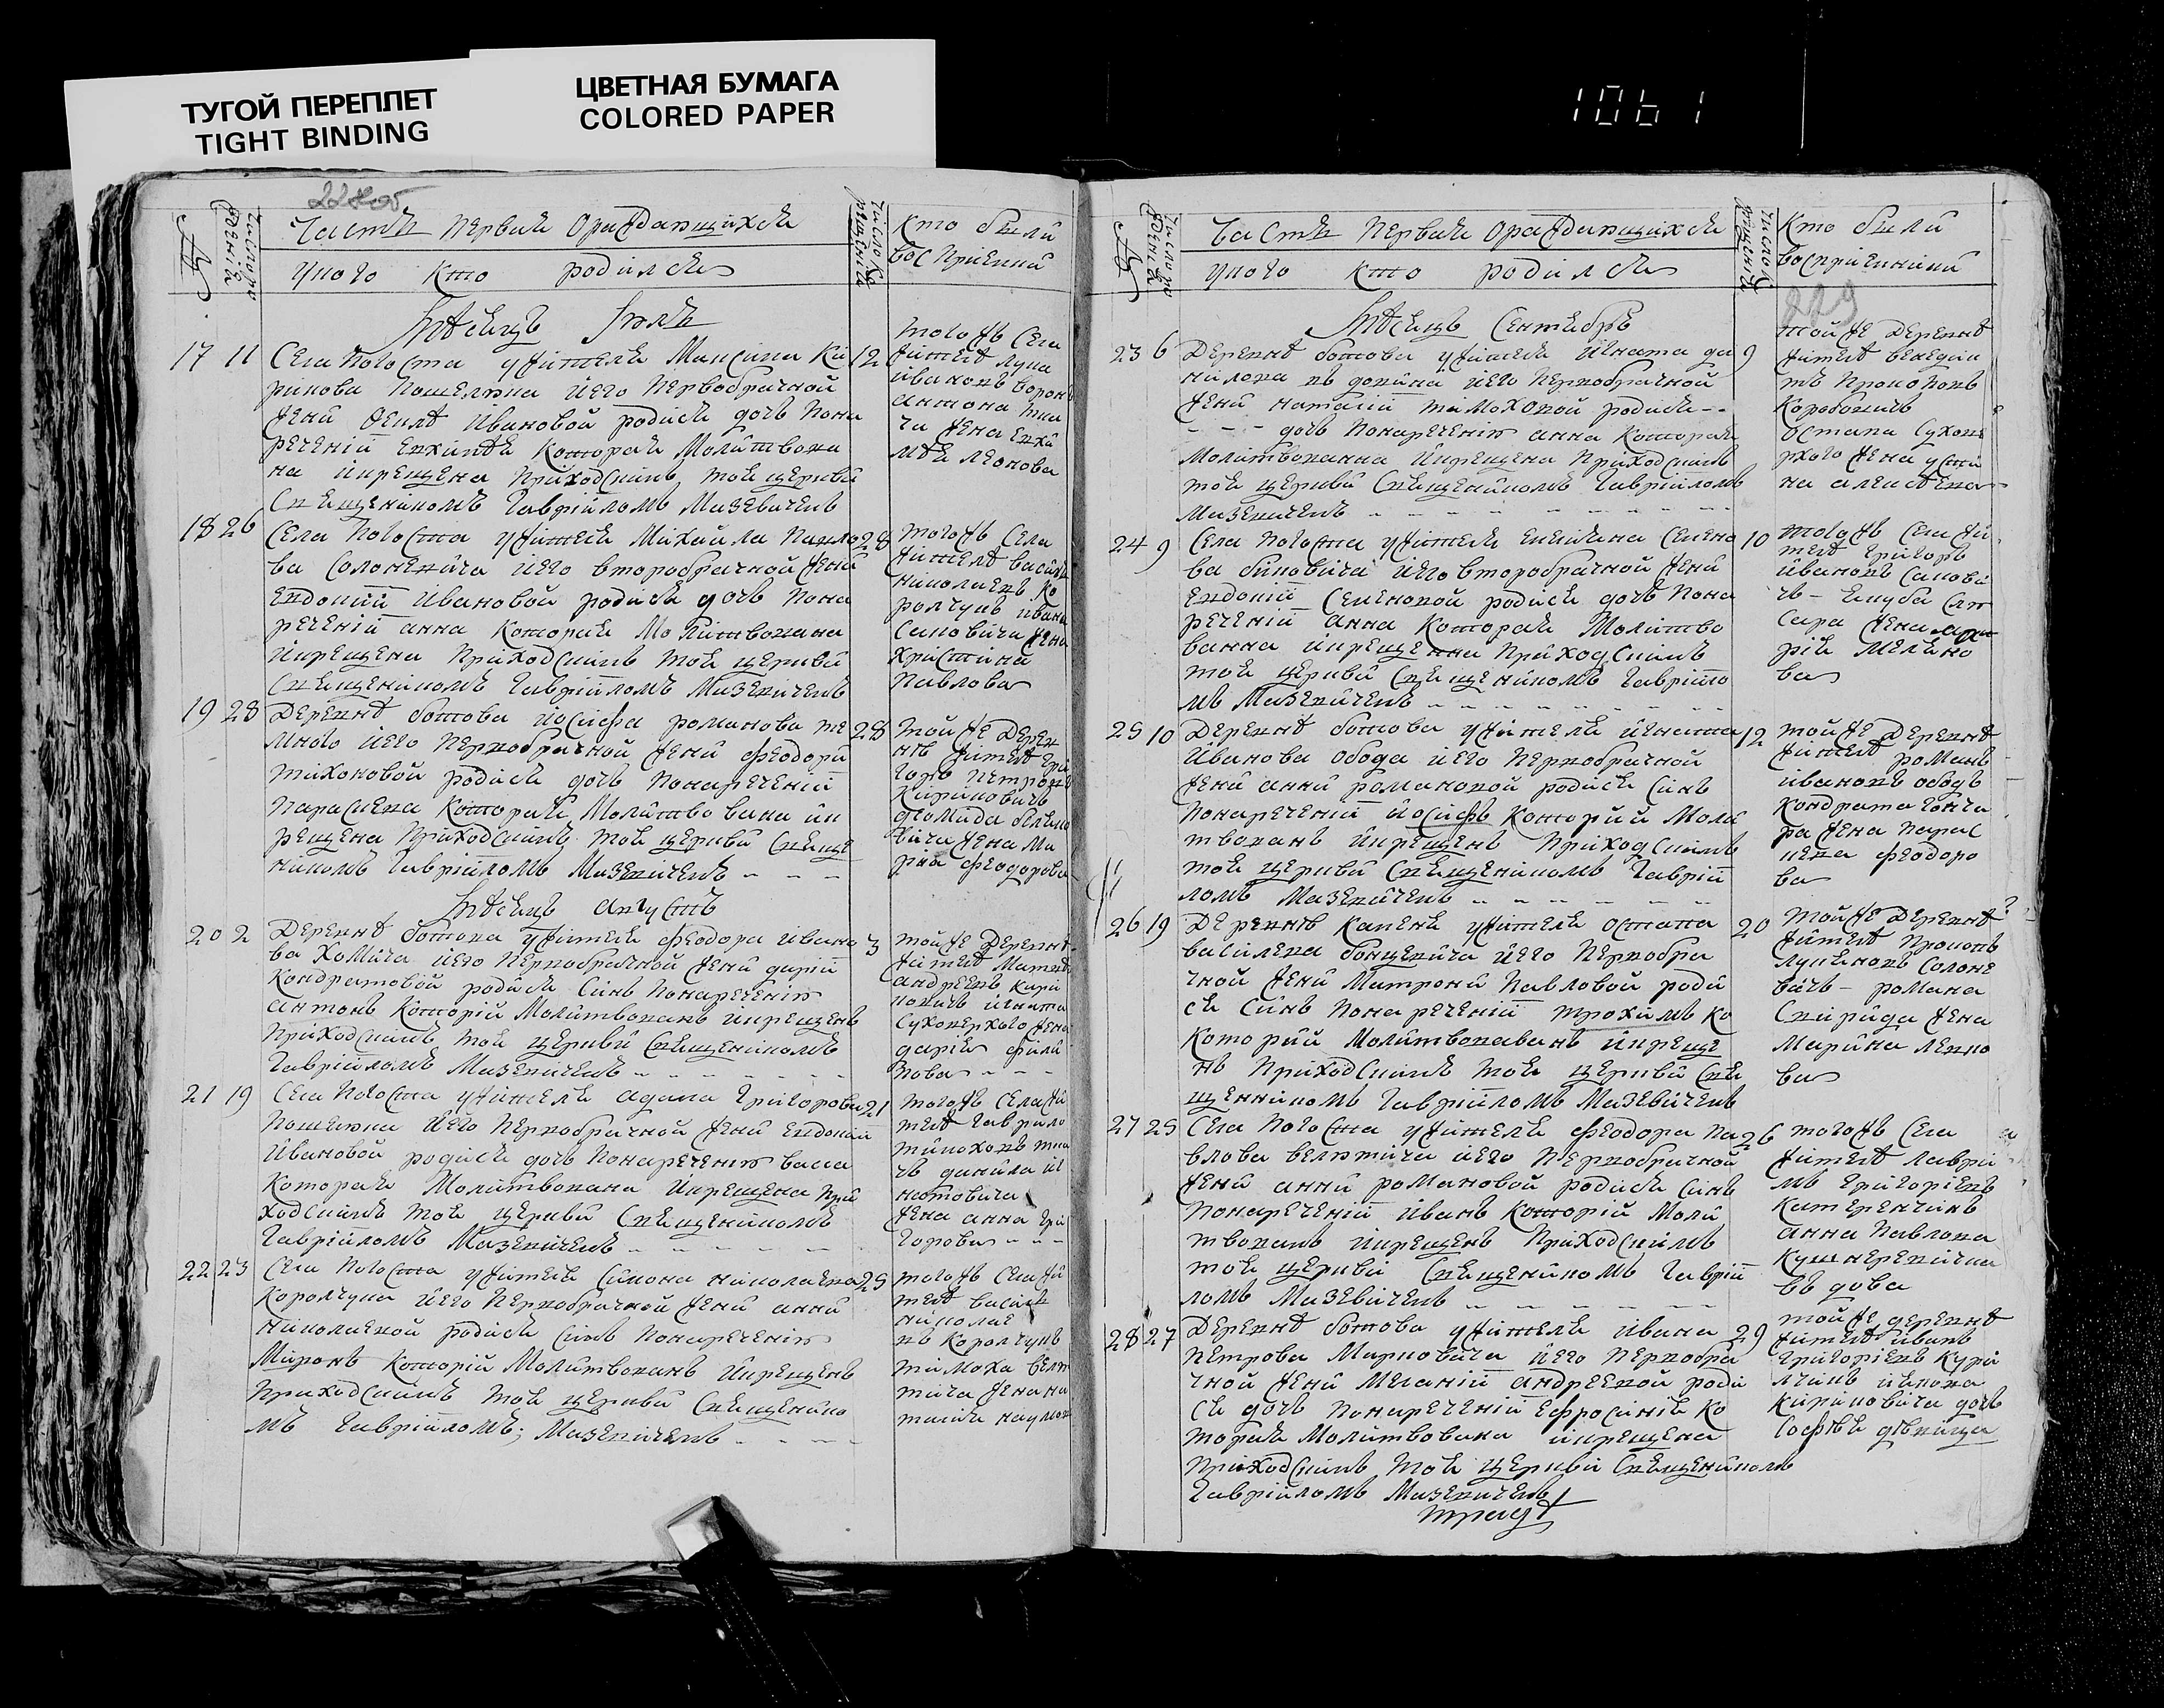 ТУГОЙ ПЕРЕПЛЕТ
TIGHT BINDING
ЦВЕТНАЯ БУМАГА
COLORED PAPER
1061
Часть Первая Ораждающихся
Кто были
воспріемники
у кого кто родился
Мѣсяцъ Іюль
17 11 Села Погоста у жителя Максима Ки 12
рикова Пошелюка и его Первобрачной
жены Феклѣ Ивановой родися дочь Пона
реченіи Евхимѣя Которая Молитвова
на и крещена Приходскимъ тоя церкви
Священикомъ Гавріиломъ Мазевичемъ
тогожъ Села
жителѣ Лука
Ивановъ
Антона тка
ча жена Евхи
мѣя Леонова
18 26 Села Погоста у жителя Михайла Павло 28
ва Солоневича и его второбрачной жены
Евдокіи Ивановой родися дочь Пона
реченіи Анна Которая Молитвована
и крещена Приходскимъ тоя церкви
Священикомъ Гавріиломъ Мазевичемъ
тогожъ Села
жителѣ Василь
Николаевъ Ко
ролчукъ Ивана
Саковича жена
Христина
Павлова
19 28 Деревнѣ Ботова Иосифа Романова те 28
много и его Первобрачной жены Феодори
Тихоновой родися дочь Понареченіи
Параскева Которая Молитвована и к
рещена Приходскимъ тоя церкви Свяще
никомъ Гавріиломъ Мазевичемъ
тойже Дерев
нѣ жителѣ Гри
горъ Петровъ
Кириковичъ
вича жена Ма
рія Феодорова
Мѣсяцъ Августъ
20 2 Деревнѣ Ботова у жителя Феодора Ивано 3
ва Хомича и его Первобрачной жены Даріи
Кондратовой родися Синъ Понареченію
Антонъ Который Молитвованъ и крещенъ
Приходскимъ тоя церкви Священикомъ
Гавріиломъ Мазевичемъ
тойже Деревнѣ
жителѣ Матвѣ
Андреевъ Кири
ковичъ Игната
Суховерхого жена
Дарія Фили
пова
21 19 Села Погоста у жителя Адама Григорова 21
Пошелюка и его Первобрачной жены Евдокіи
Ивановой родися дочь Понареченію Васса
Которая Молитвована и крещена При
ходскимъ тоя церкви Священикомъ
Гавріиломъ Мазевичемъ
тогожъ Села жи
телѣ Гаврило
Тимоховъ тка
чъ Данила Иг
натовича
жена Анна Гри
горова
22 23 Села Погоста у жителя Симона Николаева 25
Королчука и его Первобрачной жены Анни
Николаевой родися Синъ Понареченію
Миронъ Который Молитвованъ и крещенъ
Приходскимъ тоя церкви Священико
мъ Гавріиломъ Мазевичемъ
тогожъ Села жи
телѣ Василь
Николае
въ Королчукъ
Тимоха Велю
тича жена На
талія Наумов
Часть Первая Ораждающихся
Кто были
воспріемники
у кого кто родился
229
Мѣсяцъ Сентябрь
23 6 Деревнѣ Ботова у жителя Игната Да 9
нилова вдовина и его Первобрачной
жены Наталіи Тимоховой родися
дочь Понареченію Анна Которая
Молитвованна и крещена Приходскимъ
тоя церкви Священикомъ Гавріиломъ
Мазевичемъ
тойже Деревнѣ
жителѣ Венедик
тъ Прокоповъ
Коробовичъ
Остапа Сухове
рхого жена Усти
на Алексѣева
24 9 Села Погоста у жителя Емиляна Семено 10
ва Биковича и его второбрачной жены
Евдокіи Семеновой родися дочь Пона
реченіи Анна Которая Молитво
ванна и крещенна Приходскимъ
тоя церкви Священикомъ Гавріило
мъ Мазевичемъ
тогожъ Села жи
телѣ Григоръ
Ивановъ Сакови
чъ Якуба Слю
сара жена Ма
рія Мелехо
ва
25 10 Деревнѣ Ботова у жителя Игната 12
Иванова Обода и его Первобрачной
жены Анни Романовой родися Синъ
Понареченіи Иосифъ Которий Моли
твованъ и крещенъ Приходскимъ
тоя церкви Священикомъ Гавріи
ломъ Мазевичемъ
тойже Деревнѣ
жителѣ Романъ
Ивановъ Ободъ
Кондрата Гонча
ра жена Парас
кева Феодоро
ва
26 19 Деревнѣ Каменя у жителя Остапа 20
Василева Бонцевича и его Первобра
чной жены Матроны Павловой роди
ся Синъ Понареченіи Трохимъ Ко
Которий Молитвованъ и креще
нъ Приходскимъ тоя церкви Свя
щенникомъ Гавріиломъ Мазевичемъ
тойже Деревнѣ
жителѣ Прокопъ
Лукяновъ Солоне
вичъ Романа
Свирида жена
Марина Левко
ва
27 25 Села Погоста у жителя Феодора Па 26
влова Велютича и его Первобрачной
жены Анни Романовой родися Синъ
Понареченіи Иванъ Которій Моли
твованъ и крещенъ Приходскимъ
тоя церкви Священикомъ Гавріи
ломъ Мазевичемъ
тогожъ Села
жителѣ Лаврі
мъ Григоріевъ
Катеренчикъ
Анна Павлова
Кушнеревичка
вдова
28 27 Деревнѣ Ботова у жителя Ивана 29
Петрова Марковича и его Первобра
чной жены Меланіи Андреевой роди
ся дочь Понареченіи Ефросинія Ко
торая Молитвована и крещена
Приходскимъ тоя церкви Священикомъ
Гавріиломъ Мазевичемъ
тойже деревнѣ
жителѣ Иванъ
Григоріевъ Кури
лчикъ Якова
Кириковича дочь
Софѣя дѣвица